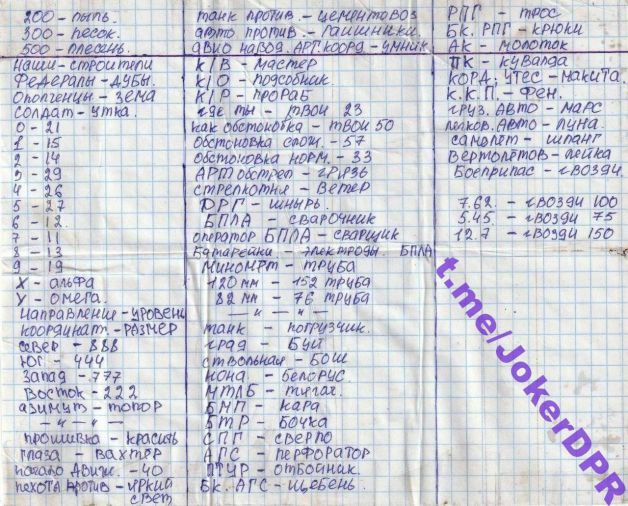 200 - пыль.
300 - песок.
500 - плесень.
Наши - строители
Федералы - дубы.
Ополченцы - зёма
Солдат - утка.
0 - 21
1 - 15
2 - 14
3 - 29
4 - 26
5 - 27
6 - 12.
7 - 11
8 - 13
9 - 19
X - альфа
У - омега.
направление - уровень
координат. - размер
север - 888
Юг - 444
Запад - 777
Восток - 222
азимут - топор
— " — " —
прошивка - красить
глаза - вахтёр
начало движ. - 40
пехота против - яркий
свет
танк против. - цементовоз
арто против - гашники.
авио навод. арт. коорд - умник.
к/в - мастер
к/о - подсобник.
к/р - прораб
где ты - твои 23
как обстоновка - твои 50
Обстоновка слож. - 57
обстоновка норм. - 33
АРТ обстрел - грязь
стрелкотня - ветер
ДРГ - шнырь.
БПЛА - сварочник
оператор БПЛА - сварщик
Батарейки - электроды. БПЛА
Миномёт - труба
120 мм - 152 труба
82 мм - 76 труба
— " — " —
танк - погрузчик.
град - Буй
ствольная - Бош
нона - Белорус.
МТЛБ - тягач.
БМП - кара
БТР - бочка
СПГ - сверло
АГС - перфоратор
ПТУР - отбойник.
Бк. АГС - щебень.
РПГ - трос
Бк. РПГ - крюки
АК - молоток
ПК - кувалда
КОРД; утёс - макита.
К.К.П. - фен.
груз. Авто - марс
легков. Авто - луна.
самолёт - шланг
Вертолётов - лейка
Боеприпас - гвозди.
7.62. - гвозди 100
5.45. - гвозди 75
12.7 - гвозди 150
t.me/JokerDPR